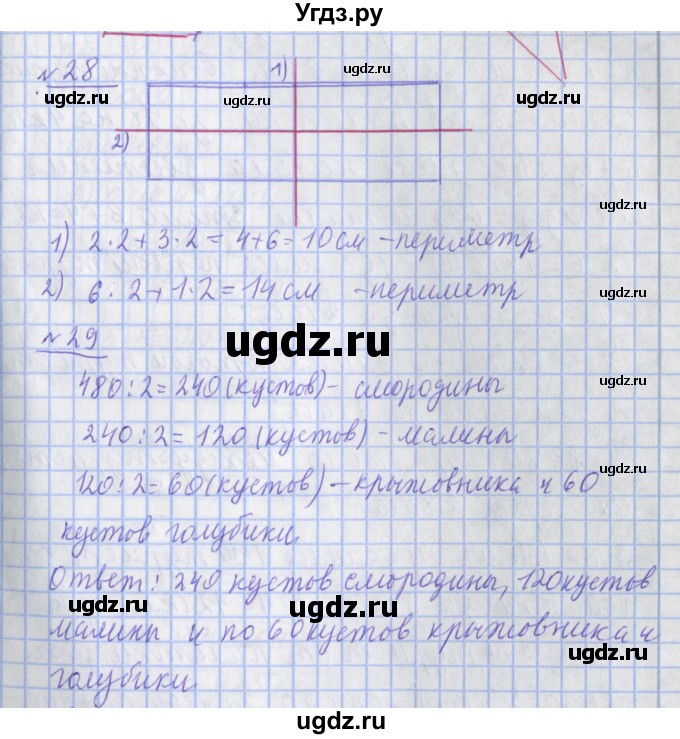 Угдз.ру
№28
1)
ugdz.ru
ugdz.ru ugdz.ru ugdz.ru
2)
ugdz.ru
1) 2·2+3·2=4+6=10см -периметр
2) 6·2+1·2=14см -периметр
ugdz.ru
№29
ugdz.ru
480:2=240(кустов)- смородины
ugdz.ru
240:2=120(кустов)-малины
120:2=60(кустов)-крыжовника и 60
ugdz.ru
кустов голубики.
Ответ: 240 кустов смородины, 120кустов
ugdz.ru ugdz.ru
малины и по 60кустов крыжовника и
ugdz.ru
голубики.
ugdz.ru